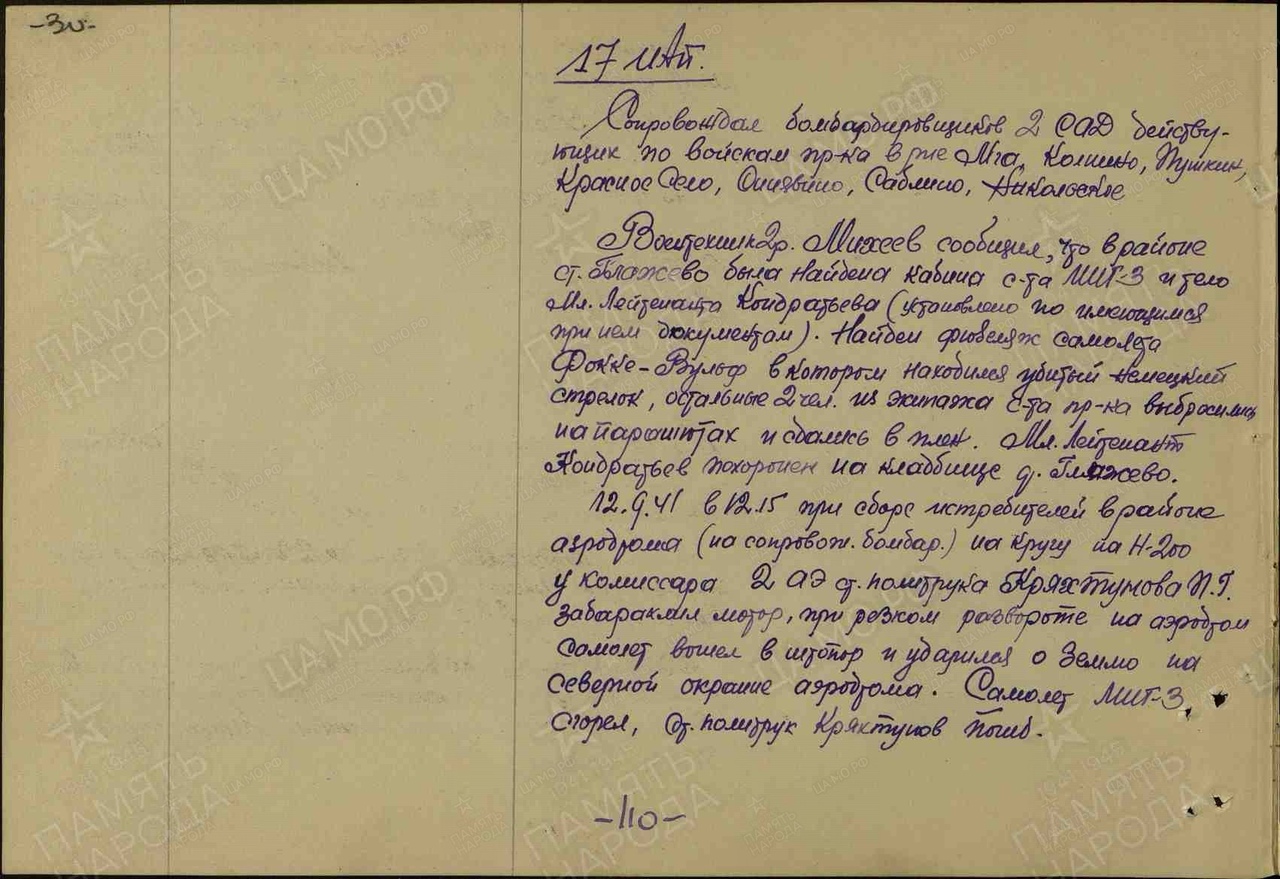 -30-
17 ИАП.
Сопровождал бомбардировщиков 2 САД действу-
ющих по войскам пр-ка в р-не Мга, Колпино, Пушкин,
Красное Село, Синявино, Саблино, Никольское
Воентехник 2р. Михеев сообщил, что в районе
ст. Глажево была найдена кабина с-та МИГ-3 и тело
Мл. Лейтенанта Кондратьева (установлено по имеющимся
при нем документам). Найден фюзеляж самолета
Фокке-Вульф в котором находился убитый немецкий
стрелок, остальные 2 чел. из экипажа с-та пр-ка выбросились
на парашютах и сдались в плен. Мл. Лейтенант
Кондратьев похоронен на кладбище д. Глажево.
12.9.41 в 12.15 при сборе истребителей в районе
аэродрома (на сопровож. бомбар.) на кругу на Н-200
у комиссара 2 АЭ ст. политрука Кряхтунова П.Г.
забарахлил мотор, при резком развороте на аэродром
самолет вошел в штопор и ударился о Землю на
северной окраине аэродрома. Самолет МИГ-3
сгорел, ст. политрук Кряхтунов погиб.
-110-